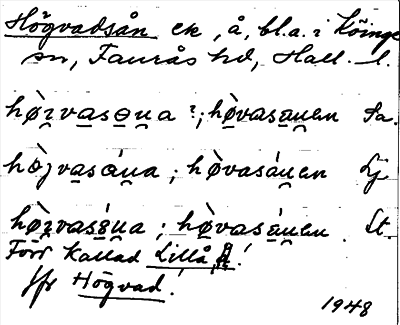 Högvadsån ek, å, bl.a. i Köinge
sn, Faurås hd, Hall. l.
hø̀ʒvasɵna ?; hø̀vasanen Sa.
hø̀ʒvasána ; hø̀vasánen Lj
hø̀ʒvasána ; hø̀vasánen St.
Förr kallad Lillå !
Jfr Högvad !
1948